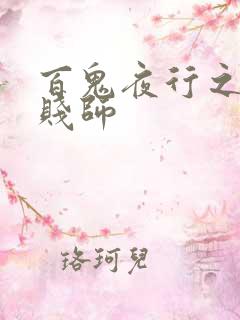 百鬼夜行之
賤師
珞珂兒